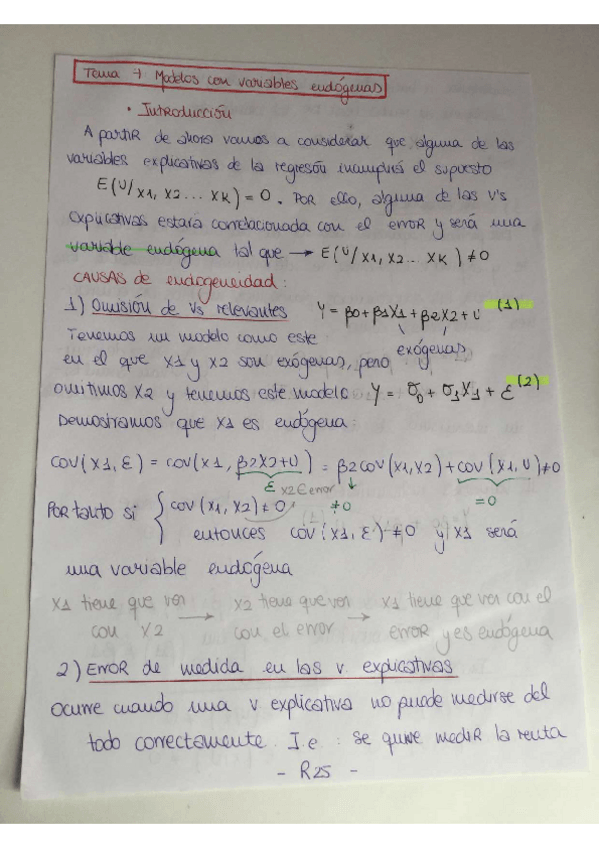 Tema 7 Modelos con variables endógenas
• Introducción
A partir de ahora vamos a considerar que alguna de las
variables explicativas de la regresión incumplirá el supuesto
E(U/X1, X2... XK) = 0. Por ello, alguna de las V's
explicativas estará correlacionada con el error y será una
variable endógena tal que → E(U/X1, X2... XK) ≠ 0
CAUSAS de endogeneidad:
1) Omisión de Vs relevantes Y = β0 + β1X1 + β2X2 + U (1)
Tenemos un modelo como este
exógenas
en el que X1 y X2 son exógenas, pero
omitimos X2 y tenemos este modelo Y = σ0 + σ1X1 + ε (2)
Demostramos que X1 es endógena:
COV(X1, ε) = COV(X1, β2X2+U) = β2COV(X1,X2) + COV(X1,U) ≠ 0
ε X2 ∈ error ↓ ≠0 =0
Por tanto si { COV(X1, X2) ≠ 0,
entonces COV(X1, ε) ≠ 0 y X1 será
una variable endógena
X1 tiene que ver con X2 → X2 tiene que ver con el error → X1 tiene que ver con el error y es endógena
2) Error de medida en las v. explicativas
Ocurre cuando una v explicativa no puede medirse del
todo correctamente. I.e: se quiere medir la renta
- R25 -